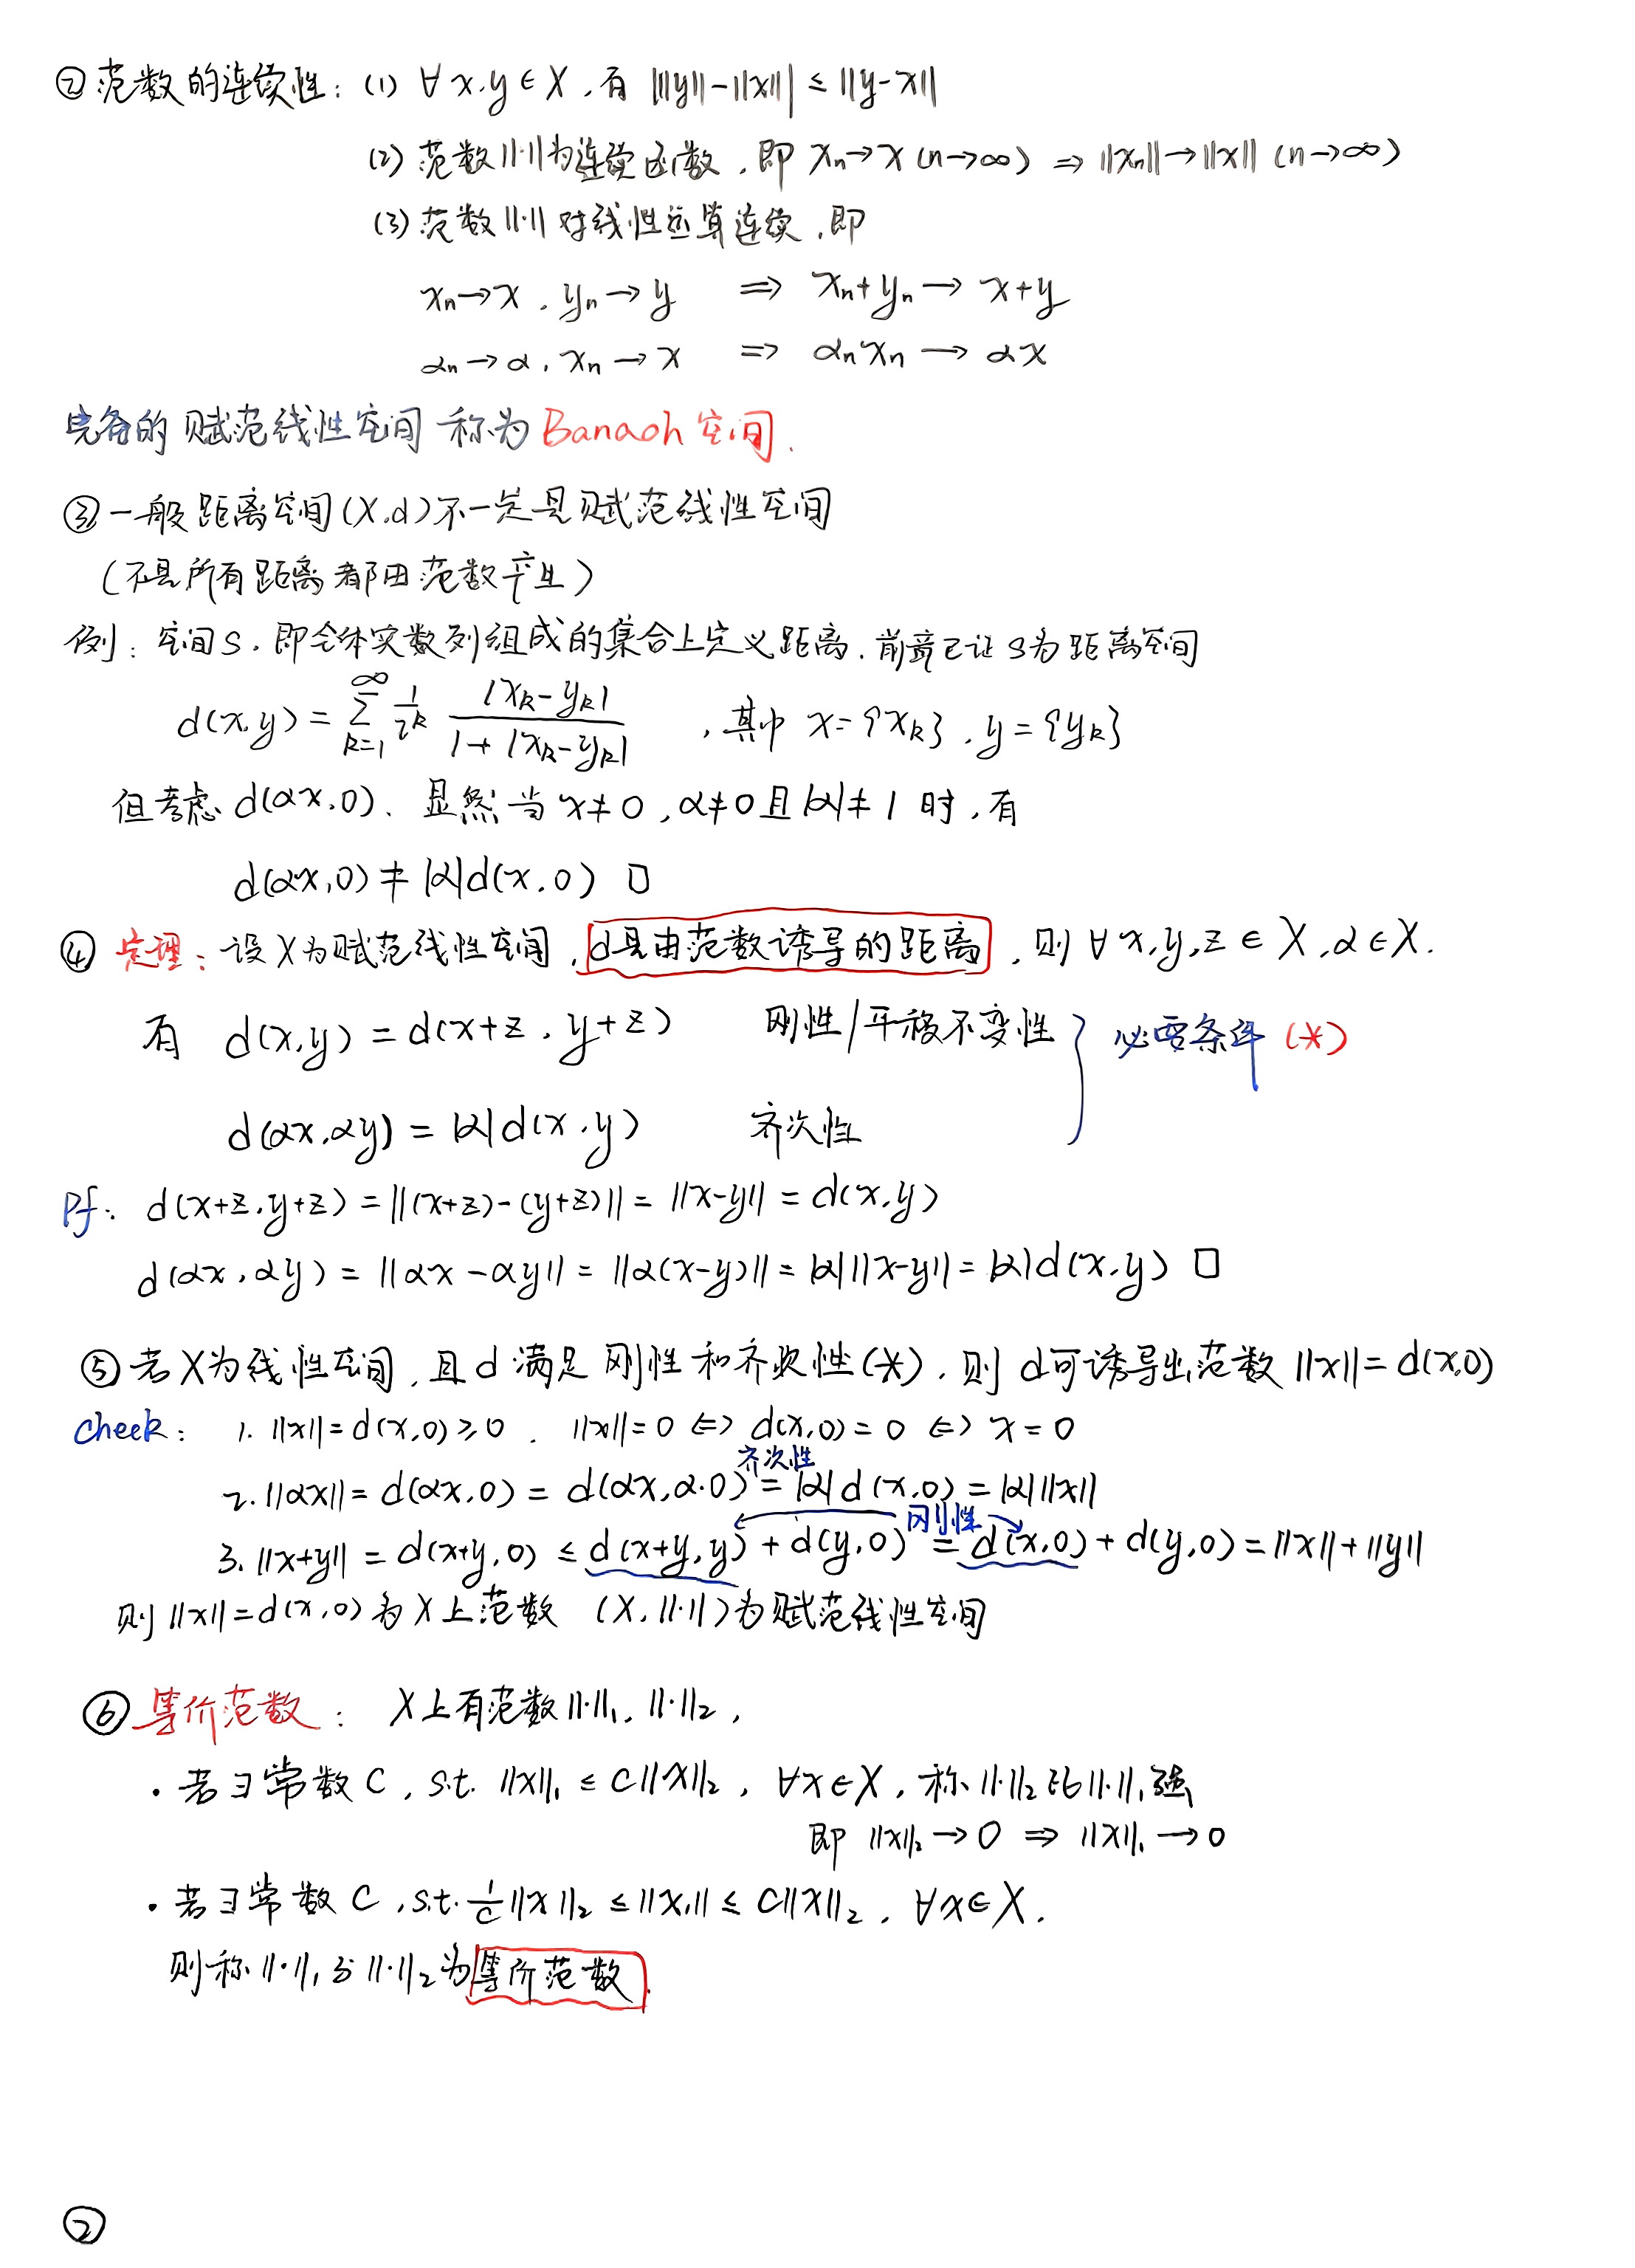 ② 范数的连续性：(1) ∀ x,y ∈ X，有 |‖y‖-‖x‖| ≤ ‖y-x‖
(2) 范数‖·‖为连续函数，即 xₙ→x (n→∞) ⇒ ‖xₙ‖→‖x‖ (n→∞)
(3) 范数‖·‖对线性运算连续，即
xₙ→x，yₙ→y ⇒ xₙ+yₙ→x+y
αₙ→α，xₙ→x ⇒ αₙxₙ→αx
完备的赋范线性空间称为Banach空间.
③ 一般距离空间(X,d)不一定是赋范线性空间
(不是所有距离都由范数产生)
例：空间S，即全体实数列组成的集合上定义距离，前章已证S为距离空间
d(x,y) = ∑_{k=1}^{∞} 1/2^k |x_k-y_k|/(1+|x_k-y_k|)，其中 x={x_k}，y={y_k}
但考虑 d(αx,0)、显然当 x≠0，α≠0且|α|≠1时，有
d(αx,0)≠|α|d(x,0) □
④ 定理：设X为赋范线性空间，d是由范数诱导的距离，则 ∀ x,y,z ∈ X，α∈X.
有 d(x,y) = d(x+z,y+z) 刚性/平移不变性 } 必要条件 (*)
d(αx,αy) = |α|d(x,y) 齐次性
Pf：d(x+z,y+z) = ‖(x+z)-(y+z)‖ = ‖x-y‖ = d(x,y)
d(αx,αy) = ‖αx-αy‖ = ‖α(x-y)‖ = |α|‖x-y‖ = |α|d(x,y) □
⑤ 若X为线性空间，且d满足刚性和齐次性(*)，则d可诱导出范数‖x‖=d(x,0)
Check： 1. ‖x‖=d(x,0)≥0． ‖x‖=0 ⇔ d(x,0)=0 ⇔ x=0
齐次性
2. ‖αx‖ = d(αx,0) = d(αx,α·0) = |α|d(x,0) = |α|‖x‖
刚性
3. ‖x+y‖ = d(x+y,0) ≤ d(x+y,y)+d(y,0) = d(x,0)+d(y,0) = ‖x‖+‖y‖
则‖x‖=d(x,0)为X上范数 (X,‖·‖)为赋范线性空间
⑥ 等价范数： X上有范数‖·‖₁，‖·‖₂，
· 若∃常数C，s.t. ‖x‖₁ ≤ C‖x‖₂，∀x∈X，称‖·‖₂比‖·‖₁强
即‖x‖₂→0 ⇒ ‖x‖₁→0
· 若∃常数C，s.t. 1/C‖x‖₂ ≤ ‖x₁‖ ≤ C‖x‖₂，∀x∈X.
则称‖·‖₁与‖·‖₂为等价范数.
②